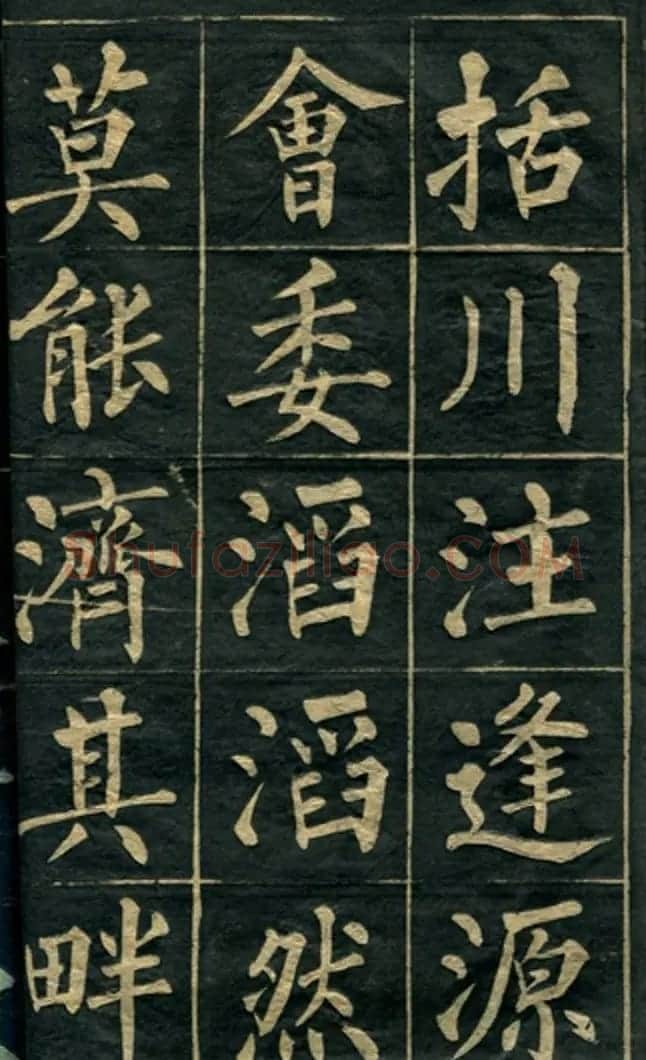 括川注逢源
會委滔滔然
莫能濟其畔
Shufaziliao.COM